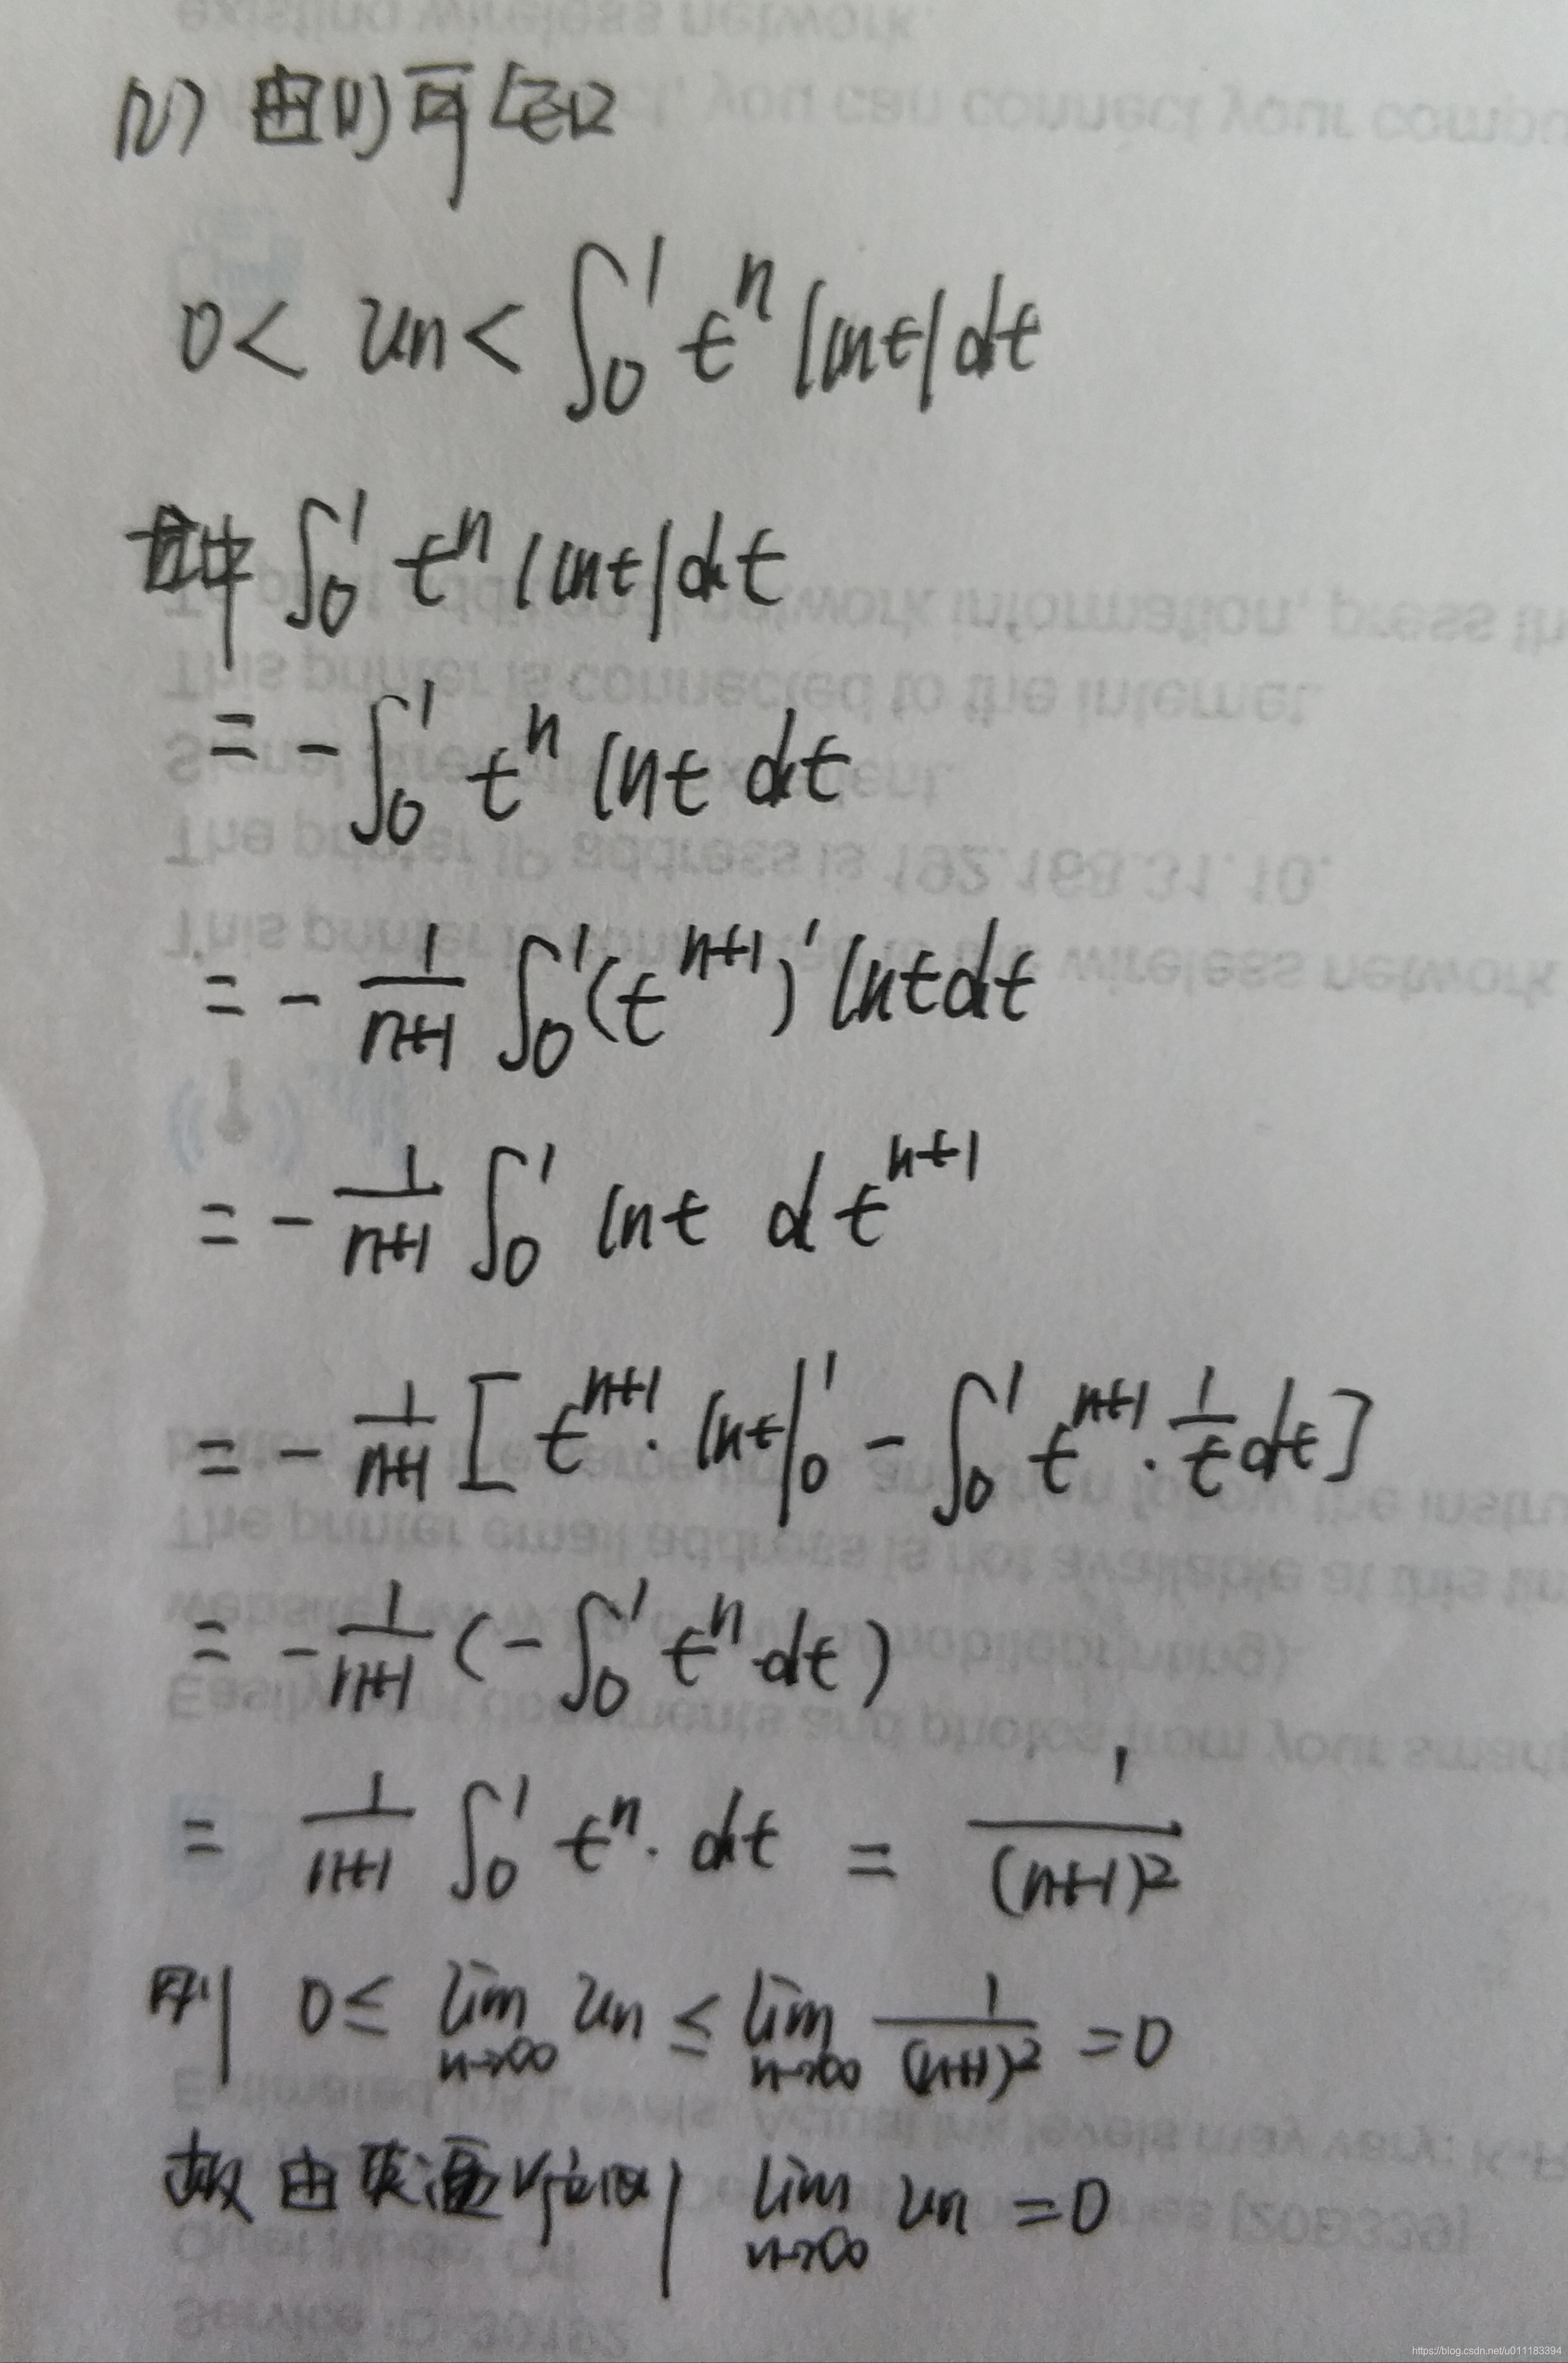 (2) 由(1)可知
0 < un < ∫₀¹ tⁿ |lnt| dt
其中 ∫₀¹ tⁿ |lnt| dt
= - ∫₀¹ tⁿ lnt dt
= - 1/(n+1) ∫₀¹ (tⁿ⁺¹)' lnt dt
= - 1/(n+1) ∫₀¹ lnt d tⁿ⁺¹
= - 1/(n+1) [ tⁿ⁺¹ · lnt |₀¹ - ∫₀¹ tⁿ⁺¹ · 1/t dt ]
= - 1/(n+1) ( - ∫₀¹ tⁿ · dt )
= 1/(n+1) ∫₀¹ tⁿ · dt = 1/(n+1)²
则 0 ≤ lim n→∞ un ≤ lim n→∞ 1/(n+1)² = 0
故由夹逼准则 lim n→∞ un = 0
https://blog.csdn.net/u011183394